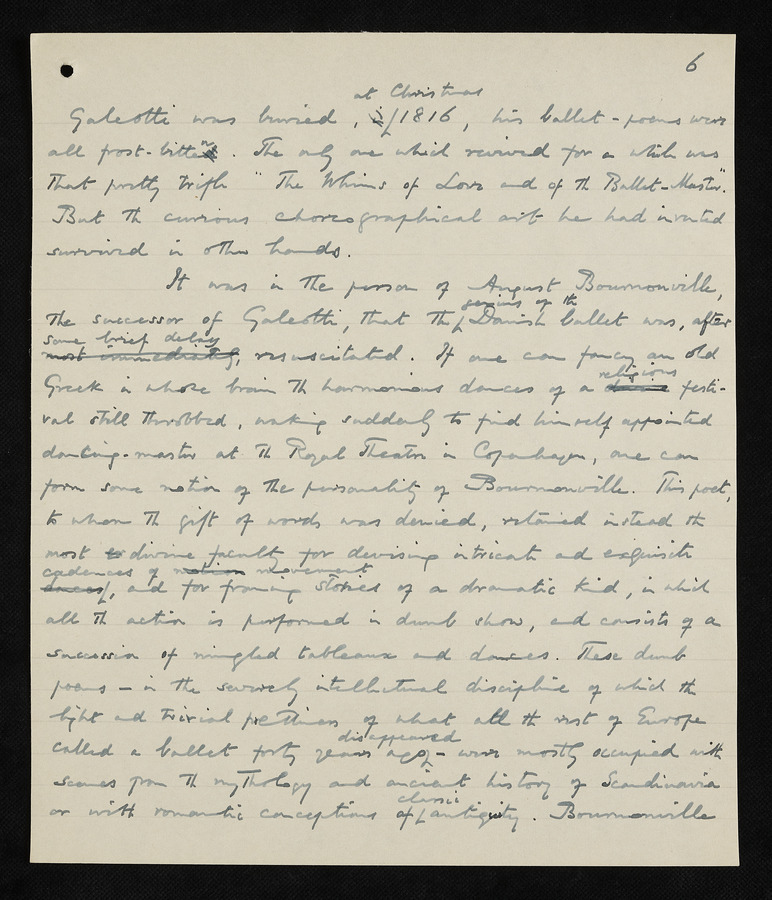 6
at Christmas
Galeotti was buried, 1816, his ballet-poems were
all frost-bitten. The only one which revived for a while was
that pretty trifle "The Whims of Love and of the Ballet-Master".
But the curious choreographical art he had invented
survived in other hands.
It was in the person of August Bournonville,
genius of the
the successor of Galeotti, that the Danish ballet was, after
some brief delay
most immediately, resuscitated. If one can fancy an old
religious
Greek in whose brain the harmonious dances of a divine festi-
val still throbbed, waking suddenly to find himself appointed
dancing-master at the Royal Theatre in Copenhagen, one can
form some notion of the personality of Bournonville. This poet,
to whom the gift of words was denied, retained instead the
most divine faculty for devising intricate and exquisite
cadences of motion movement
dances, and for framing stories of a dramatic kind, in which
all the action is performed in dumb show, and consists of a
succession of mingled tableaux and dances. These dumb
poems – in the severely intellectual discipline of which the
light and trivial prettiness of what all the rest of Europe
disappeared
called a ballet forty years ago – were mostly occupied with
scenes from the mythology and ancient history of Scandinavia
classic
or with romantic conceptions of antiquity. Bournonville